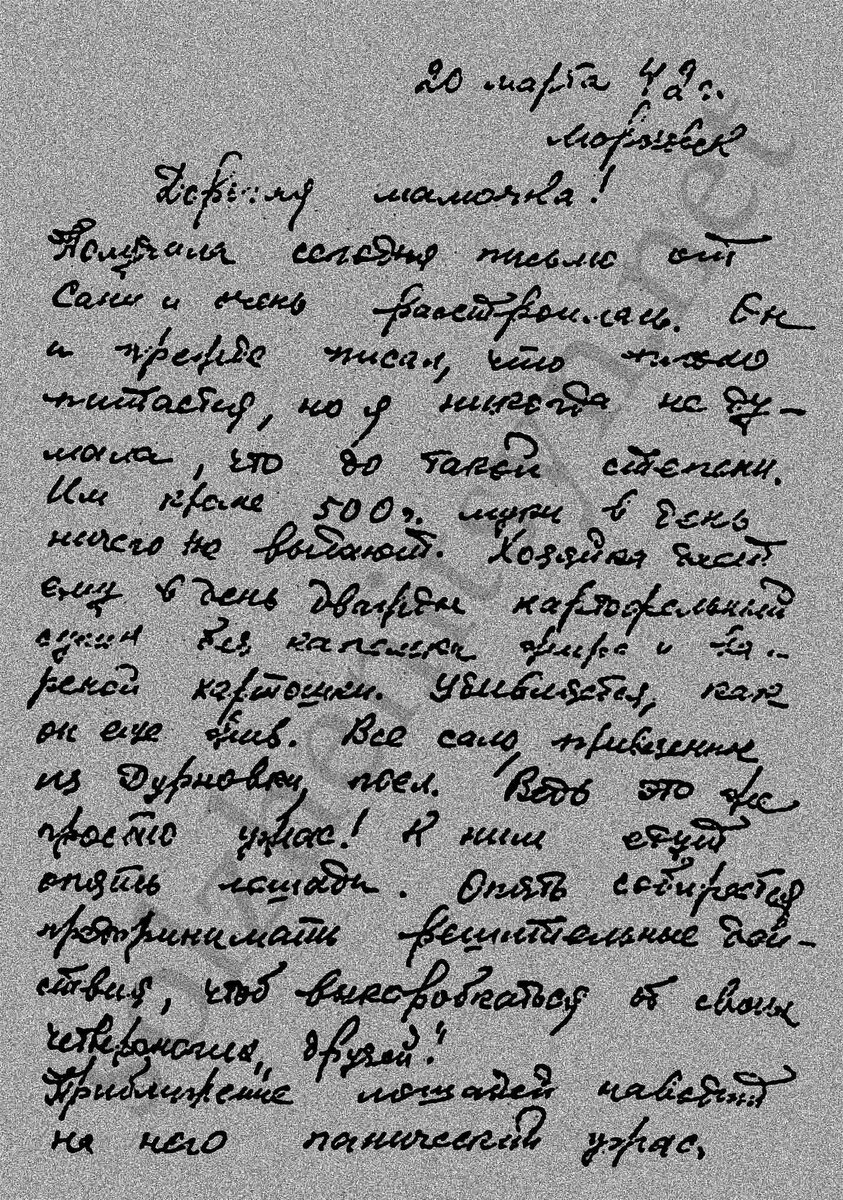 20 марта 42 г.
Моршанск
Дорогая мамочка!
Получила сегодня письмо от
Сани и очень расстроилась. Он
и прежде писал, что плохо
питается, но я никогда не ду-
мала, что до такой степени.
Им кроме 500 г. муки в день
ничего не выдают. Хозяйка дает
ему в день дважды картофельный
супик без капельки жира и ва-
реной картошки. Удивляется, как
он еще жив. Все сало, привезенное
из Дурновки, поел. Ведь это же
просто ужас! К ним едут
опять лошади. Опять собирается
предпринимать решительные дей-
ствия, чтоб выкарабкаться от своих
"четвероногих друзей".
Приближение лошадей наводит
на него панический ужас,